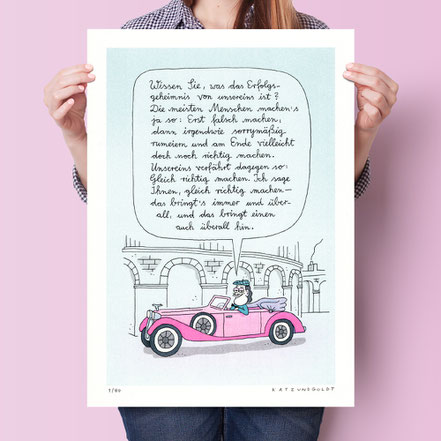 Wissen Sie, was das Erfolgs-
geheimnis von unsereins ist?
Die meisten Menschen machen's
ja so: Erst falsch machen,
dann irgendwie sorrymäßig
rumeiern und am Ende vielleicht
doch noch richtig machen.
Unsereins verfährt dagegen so:
Gleich richtig machen. Ich sage
Ihnen, gleich richtig machen –
das bringt's immer und über-
all, und das bringt einen
auch überall hin.
KATZUNDGOLDT